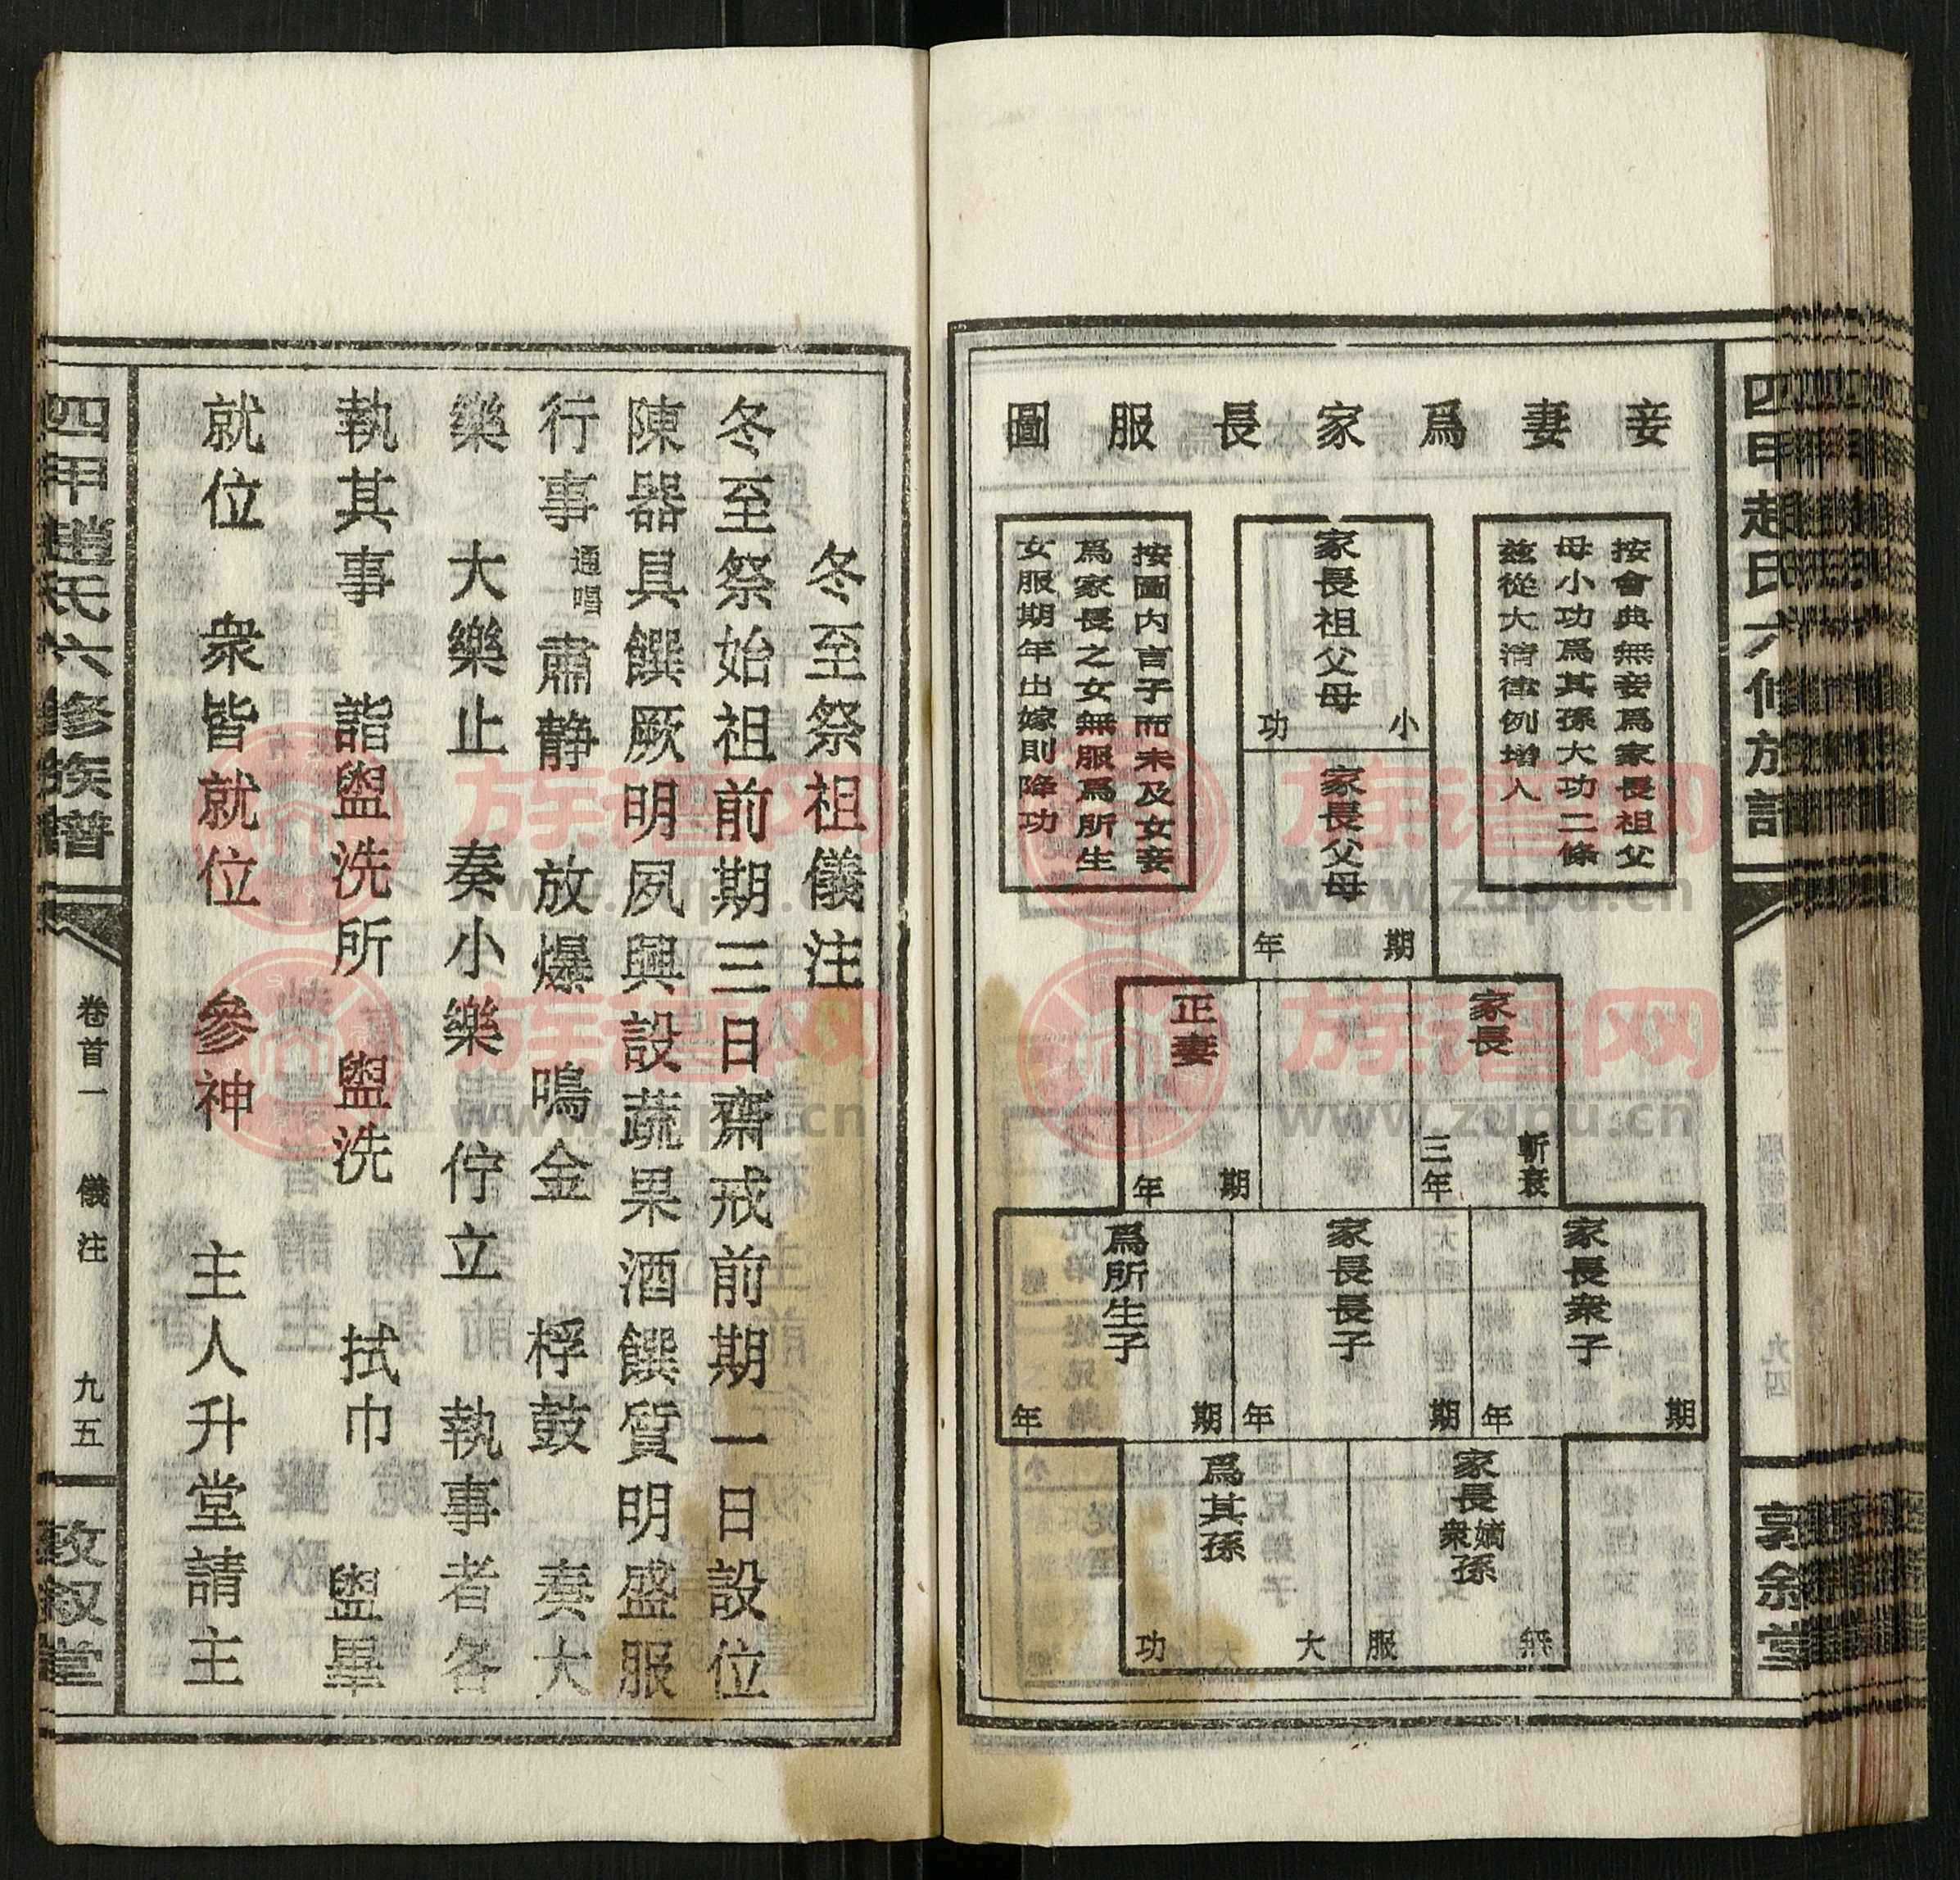 四甲趙氏六修族譜
妾妻爲家長服圖
按會典無妾爲家長祖父
母小功爲其孫大功二條
茲從大清律例增入
家長祖父母
小功
家長父母
期年
按圖内言子而未及女妾
爲家長之女無服爲所生
女服期年出嫁則降功
家長
斬衰
三年
正妻
期年
家長衆子
期年
家長長子
期年
爲所生子
期年
家長嫡衆孫
無服
爲其孫
大功
冬至祭祖儀注
冬至祭始祖前期三日齋戒前期一日設位
陳器具饌厥明夙興設蔬果酒饌質明盛服
行事通唱肅静 放爆 鳴金 桴鼓 奏大
樂 大樂止 奏小樂 佇立 執事者各
執其事 詣盥洗所 盥洗 拭巾 盥畢
就位 衆皆就位 參神 主人升堂請主
四甲趙氏六修族譜
卷首一 儀注 九五
敦叙堂
族谱网
www.zupu.cn
族谱网
www.zupu.cn
族谱网
www.zupu.cn
族谱网
www.zupu.cn